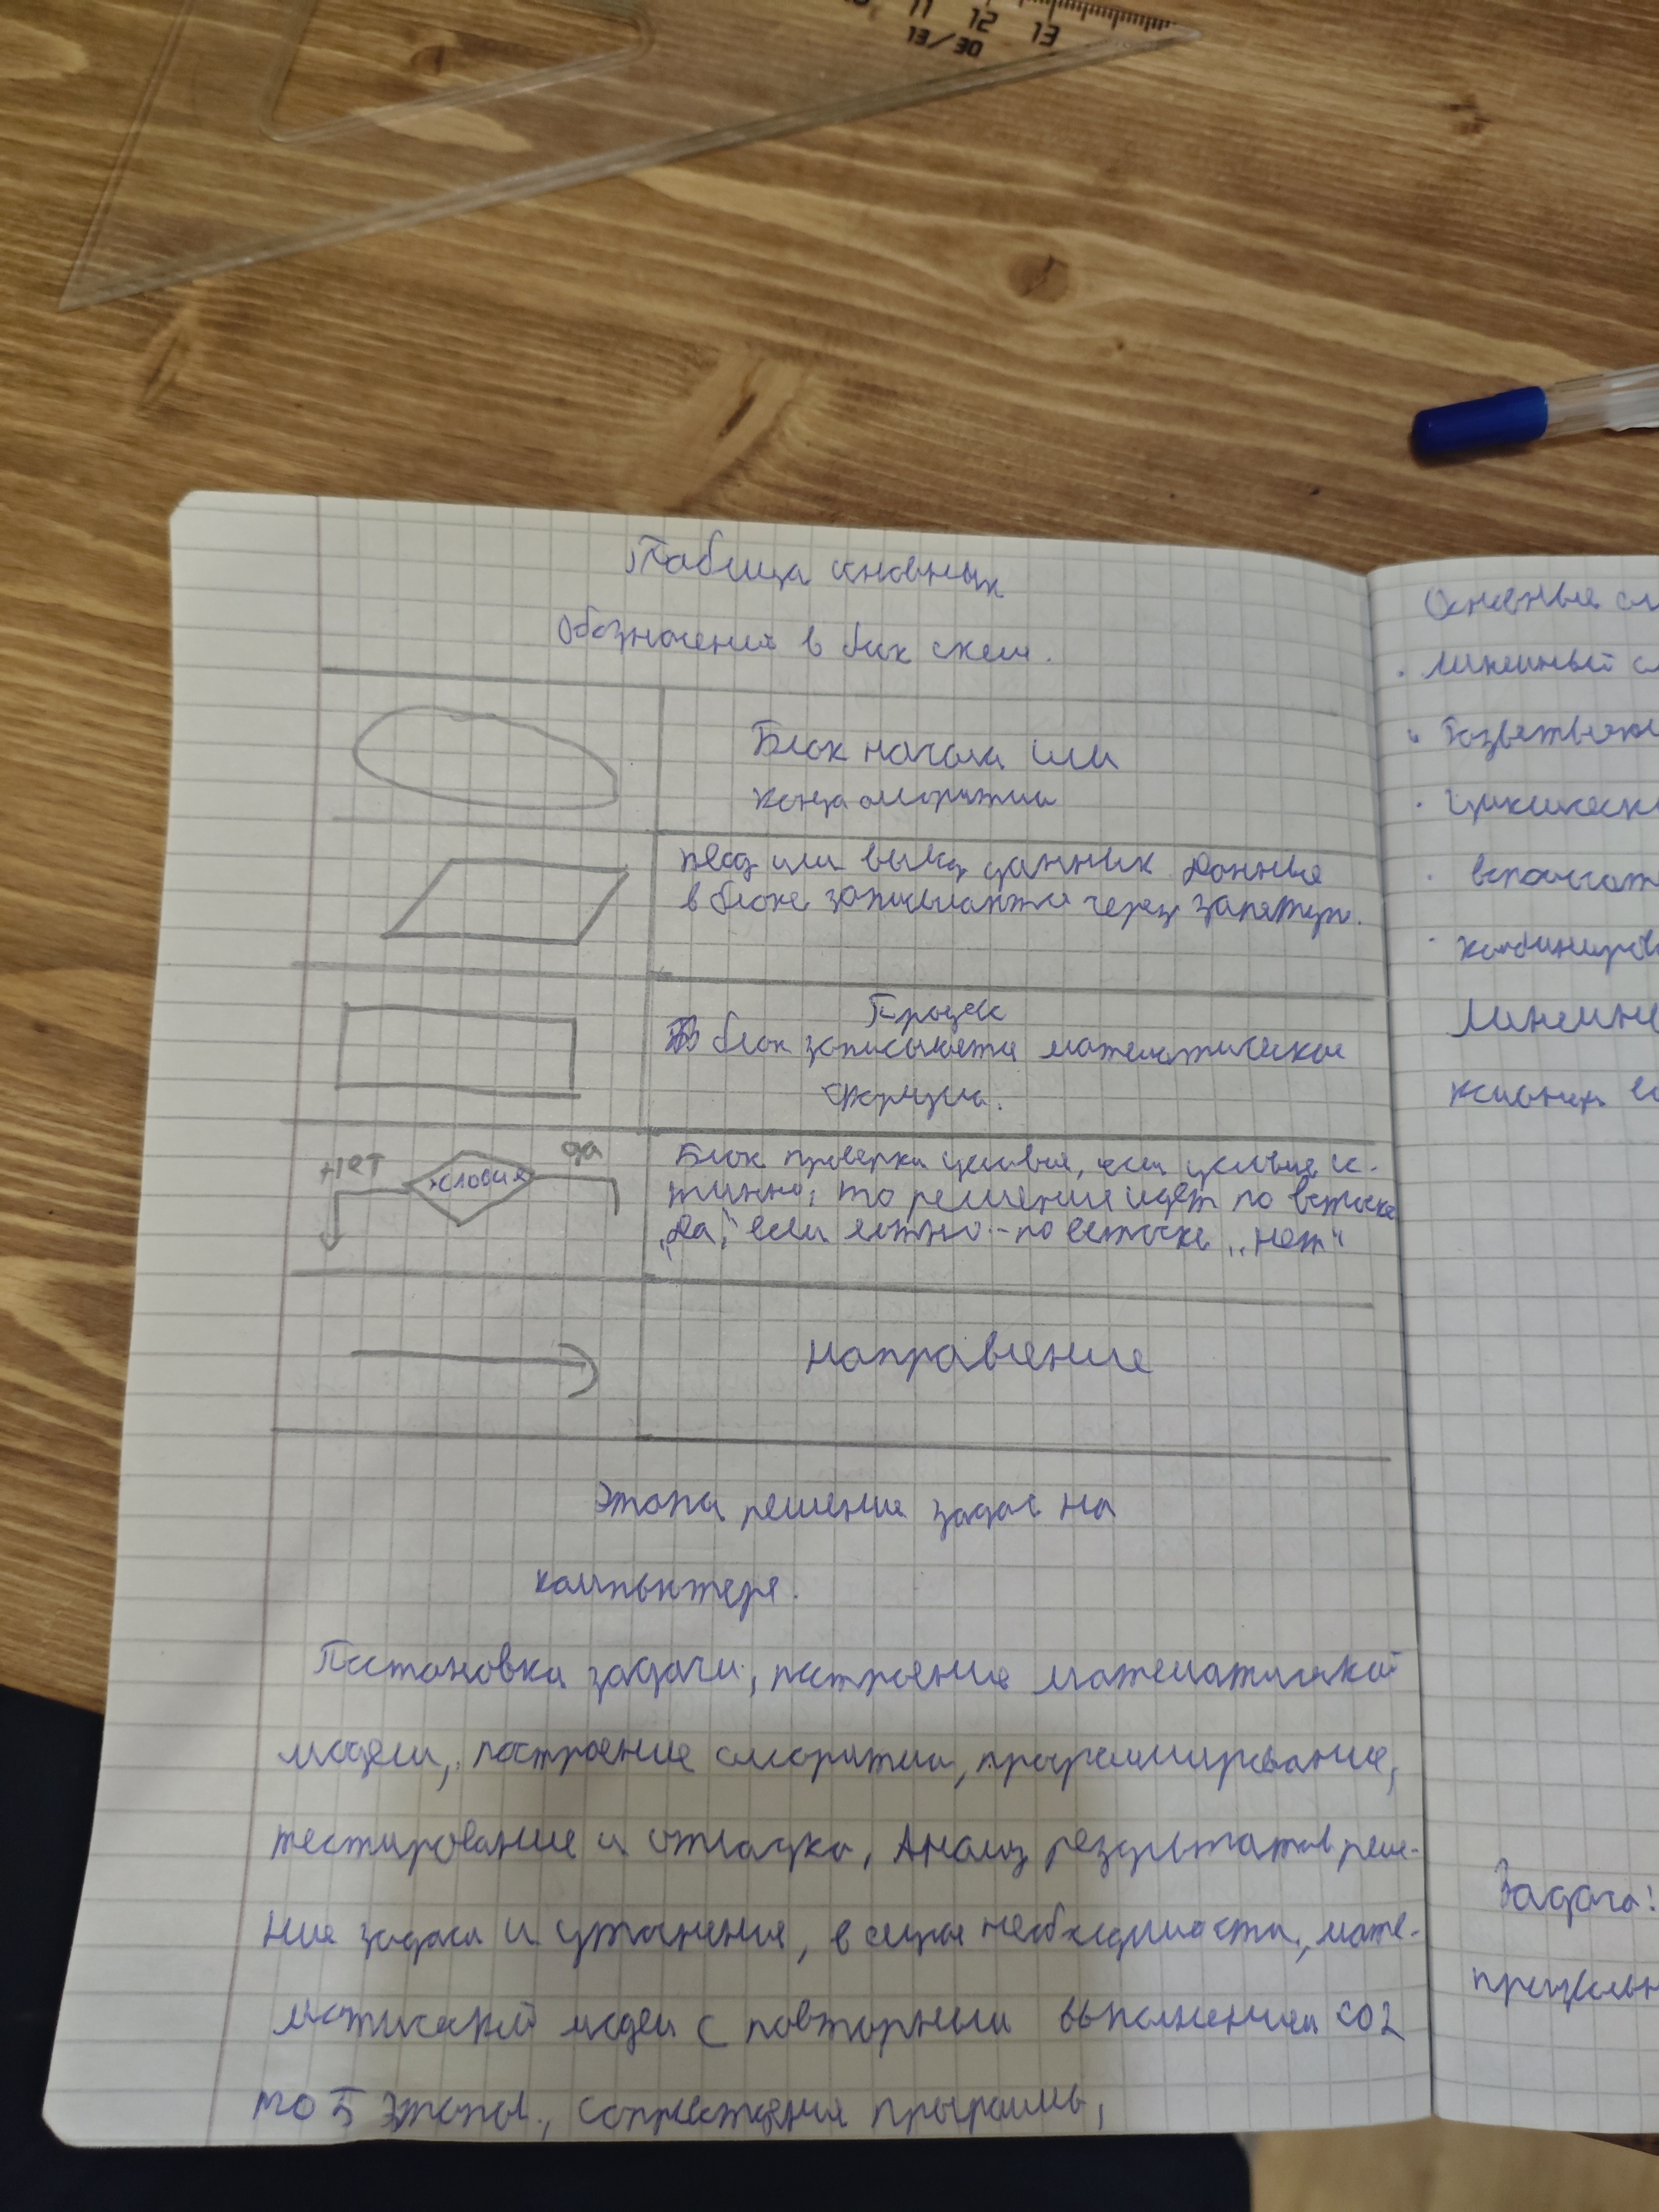 11 12 13
13/30
Таблица основных
Обозначения в блок схем.
Блок начала или
конца алгоритма
ввод или вывод данных Данные
в блоке записываются через запятую.
Процесс
В блок записывается математическая
формула.
нет
да
условия
Блок проверки условия, если условие ис-
тинно, то решения идет по веточке
„да", если ложно - по веточке „нет"
направление
Этапы решение задач на
компьютере.
Постановка задачи, построение математической
модели, построение алгоритма, программирование,
тестирование и отладка, Анализ результатов реше-
ние задачи и уточнение, в случае необходимости, мате-
матической модели с повторным выполнением со 2
по 5 этапы, сопровождения программы,
Основные
линейный
Разветвляю
циклическ
вспомогат
комбиниров
Линейн
Задача!
произвольн